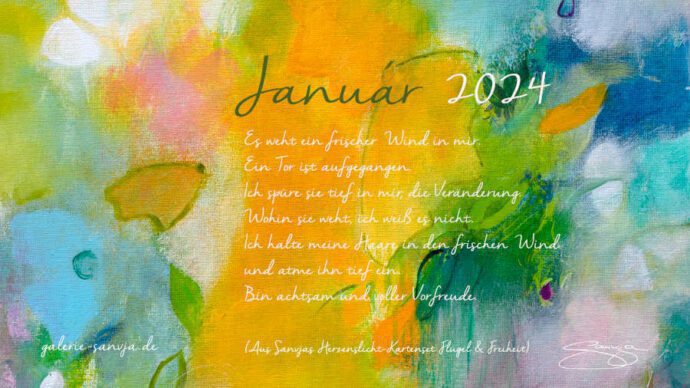 Januar 2024
Es weht ein frischer Wind in mir.
Ein Tor ist aufgegangen.
Ich spüre sie tief in mir, die Veränderung.
Wohin sie weht, ich weiß es nicht.
Ich halte meine Haare in den frischen Wind
und atme ihn tief ein.
Bin achtsam und voller Vorfreude.
galerie-sanvja.de (Aus Sanvjas Herzenslicht-Kartenset Flügel & Freiheit) Sanvja